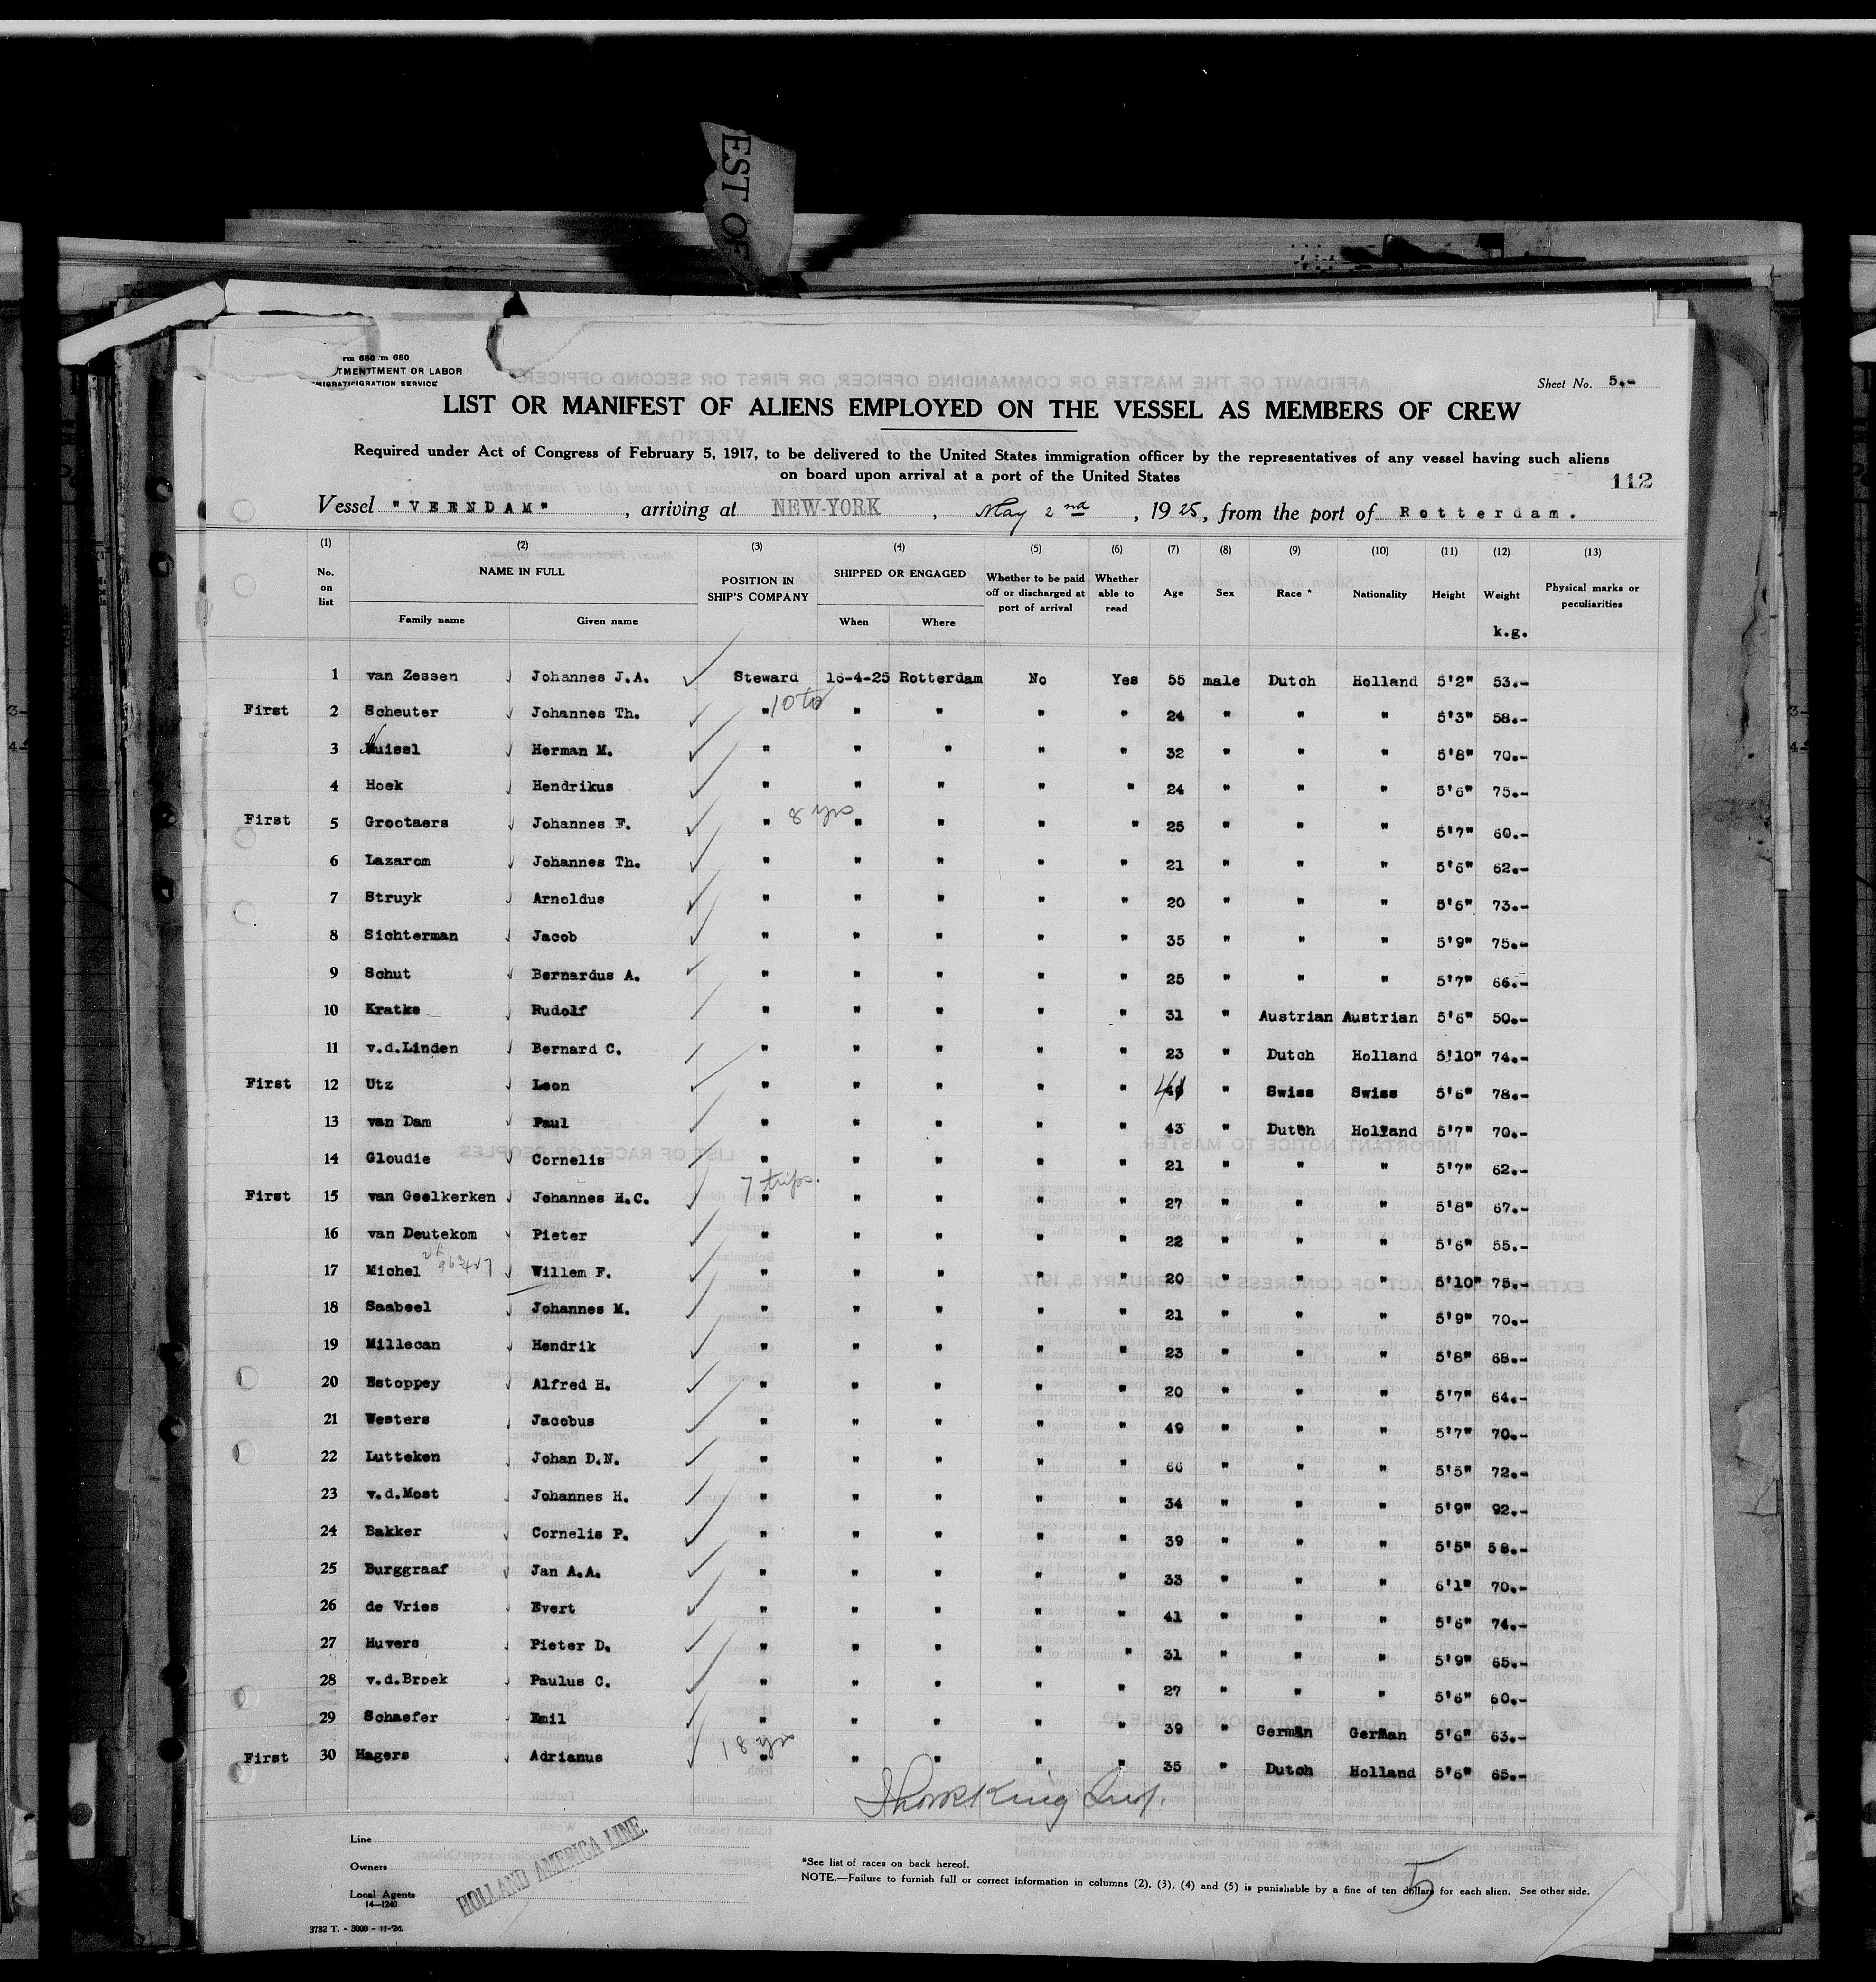 EST OF
rm 680 m 680
TMENTTMENT OR LABOR
MIGRATIGRATION SERVICE
Sheet No. 5.-
LIST OR MANIFEST OF ALIENS EMPLOYED ON THE VESSEL AS MEMBERS OF CREW
Required under Act of Congress of February 5, 1917, to be delivered to the United States immigration officer by the representatives of any vessel having such aliens
on board upon arrival at a port of the United States
112
Vessel "VEENDAM", arriving at NEW-YORK, May 2nd, 1925, from the port of Rotterdam.
(1) (2) (3) (4) (5) (6) (7) (8) (9) (10) (11) (12) (13)
No. on list NAME IN FULL Family name Given name POSITION IN SHIP'S COMPANY SHIPPED OR ENGAGED When Where Whether to be paid off or discharged at port of arrival Whether able to read Age Sex Race * Nationality Height Weight k.g. Physical marks or peculiarities
1 van Zessen Johannes J.A. Steward 16-4-25 Rotterdam No Yes 55 male Dutch Holland 5'2" 53.-
First 2 Scheuter Johannes Th. " 10 to " " " " 24 " " " 5'3" 58.-
3 Nuissl Herman M. " " " " " 32 " " " 5'8" 70.-
4 Hoek Hendrikus " " " " " 24 " " " 5'6" 75.-
First 5 Grootaers Johannes F. " 8 yrs " " " " 25 " " " 5'7" 60.-
6 Lazarom Johannes Th. " " " " " 21 " " " 5'6" 62.-
7 Struyk Arnoldus " " " " " 20 " " " 5'6" 73.-
8 Sichterman Jacob " " " " " 35 " " " 5'9" 75.-
9 Schut Bernardus A. " " " " " 25 " " " 5'7" 66.-
10 Kratke Rudolf " " " " " 31 " Austrian Austrian 5'6" 50.-
11 v.d.Linden Bernard C. " " " " " 23 " Dutch Holland 5'10" 74.-
First 12 Utz Leon " " " " " 41 " Swiss Swiss 5'6" 78.-
13 van Dam Paul " " " " " 43 " Dutch Holland 5'7" 70.-
14 Gloudie Cornelis " " " " " 21 " " " 5'7" 62.-
First 15 van Geelkerken Johannes H.C. 7 trips. " " " " " 27 " " " 5'8" 67.-
16 van Deutekom Pieter " " " " " 22 " " " 5'6" 55.-
17 Michel Willem F. " " " " " 20 " " " 5'10" 75.-
18 Saabeel Johannes M. " " " " " 21 " " " 5'9" 70.-
19 Millecan Hendrik " " " " " 23 " " " 5'8" 68.-
20 Estoppey Alfred H. " " " " " 20 " " " 5'7" 64.-
21 Westers Jacobus " " " " " 49 " " " 5'7" 70.-
22 Lutteken Johan D.N. " " " " " 66 " " " 5'5" 72.-
23 v.d.Most Johannes H. " " " " " 34 " " " 5'9" 92.-
24 Bakker Cornelis P. " " " " " 39 " " " 5'5" 58.-
25 Burggraaf Jan A.A. " " " " " 33 " " " 6'1" 70.-
26 de Vries Evert " " " " " 41 " " " 5'6" 74.-
27 Huvers Pieter D. " " " " " 31 " " " 5'9" 65.-
28 v.d.Broek Paulus C. " " " " " 27 " " " 5'6" 60.-
29 Schaefer Emil " " " " " 39 " German German 5'6" 63.-
First 30 Hagers Adrianus 18 yrs " " " " " 35 " Dutch Holland 5'6" 65.-
Line
Owners
Local Agents
HOLLAND AMERICA LINE.
14—1240
*See list of races on back hereof.
NOTE.—Failure to furnish full or correct information in columns (2), (3), (4) and (5) is punishable by a fine of ten dollars for each alien. See other side.
5
3732 T. - 3000 - 11-'24.